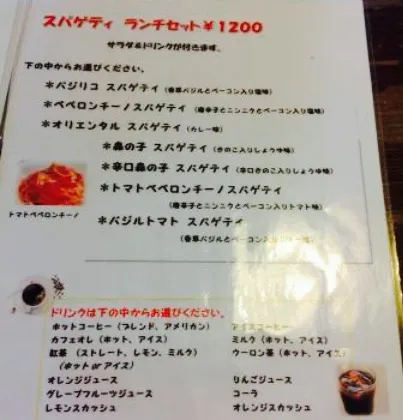 スパゲティ ランチセット￥1200
サラダ&ドリンクが付きます。
下の中からお選びください。
＊バジリコ スパゲティ（香草バジルとベーコン入り塩味）
＊ペペロンチーノスパゲティ（唐辛子とニンニクとベーコン入り塩味）
＊オリエンタル スパゲティ（カレー味）
＊森の子 スパゲティ（きのこ入りしょうゆ味）
＊辛口森の子 スパゲティ（辛口きのこ入りしょうゆ味）
＊トマトペペロンチーノスパゲティ
（唐辛子とニンニクとベーコン入りトマト味）
トマトペペロンチーノ
＊バジルトマト スパゲティ
（香草バジルとベーコン入り
ドリンクは下の中からお選びください。
ホットコーヒー（ブレンド、アメリカン）
カフェオレ（ホット、アイス）
紅茶 （ストレート、レモン、ミルク）
（ホット or アイス）
オレンジジュース
グレープフルーツジュース
レモンスカッシュ
アイスコーヒー
ミルク（ホット、アイス）
ウーロン茶（ホット、アイス）
りんごジュース
コーラ
オレンジスカッシュ